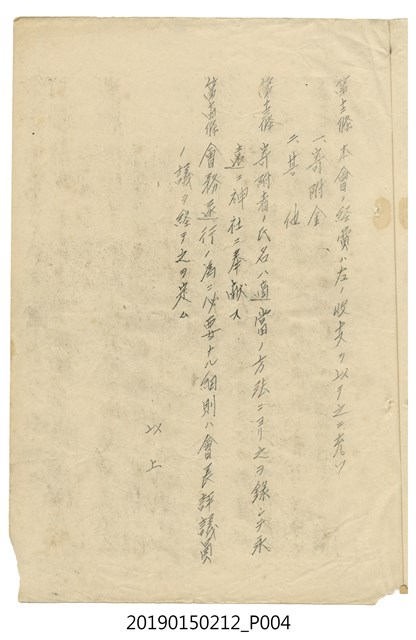 第十二條 本會ノ経費ハ左ノ收支ヲ以テ之ニ充ツ
一、寄附金
二、其他
第十三條 寄附者ノ氏名ハ適當ノ方法ニヨリ之ヲ錄シテ永
遠ニ神社ニ奉獻ス
第十四條 會務遂行ノ為ニ必要ナル細則ハ會長評議員
ノ議ヲ経テ之ヲ定ム
以上
20190150212_P004